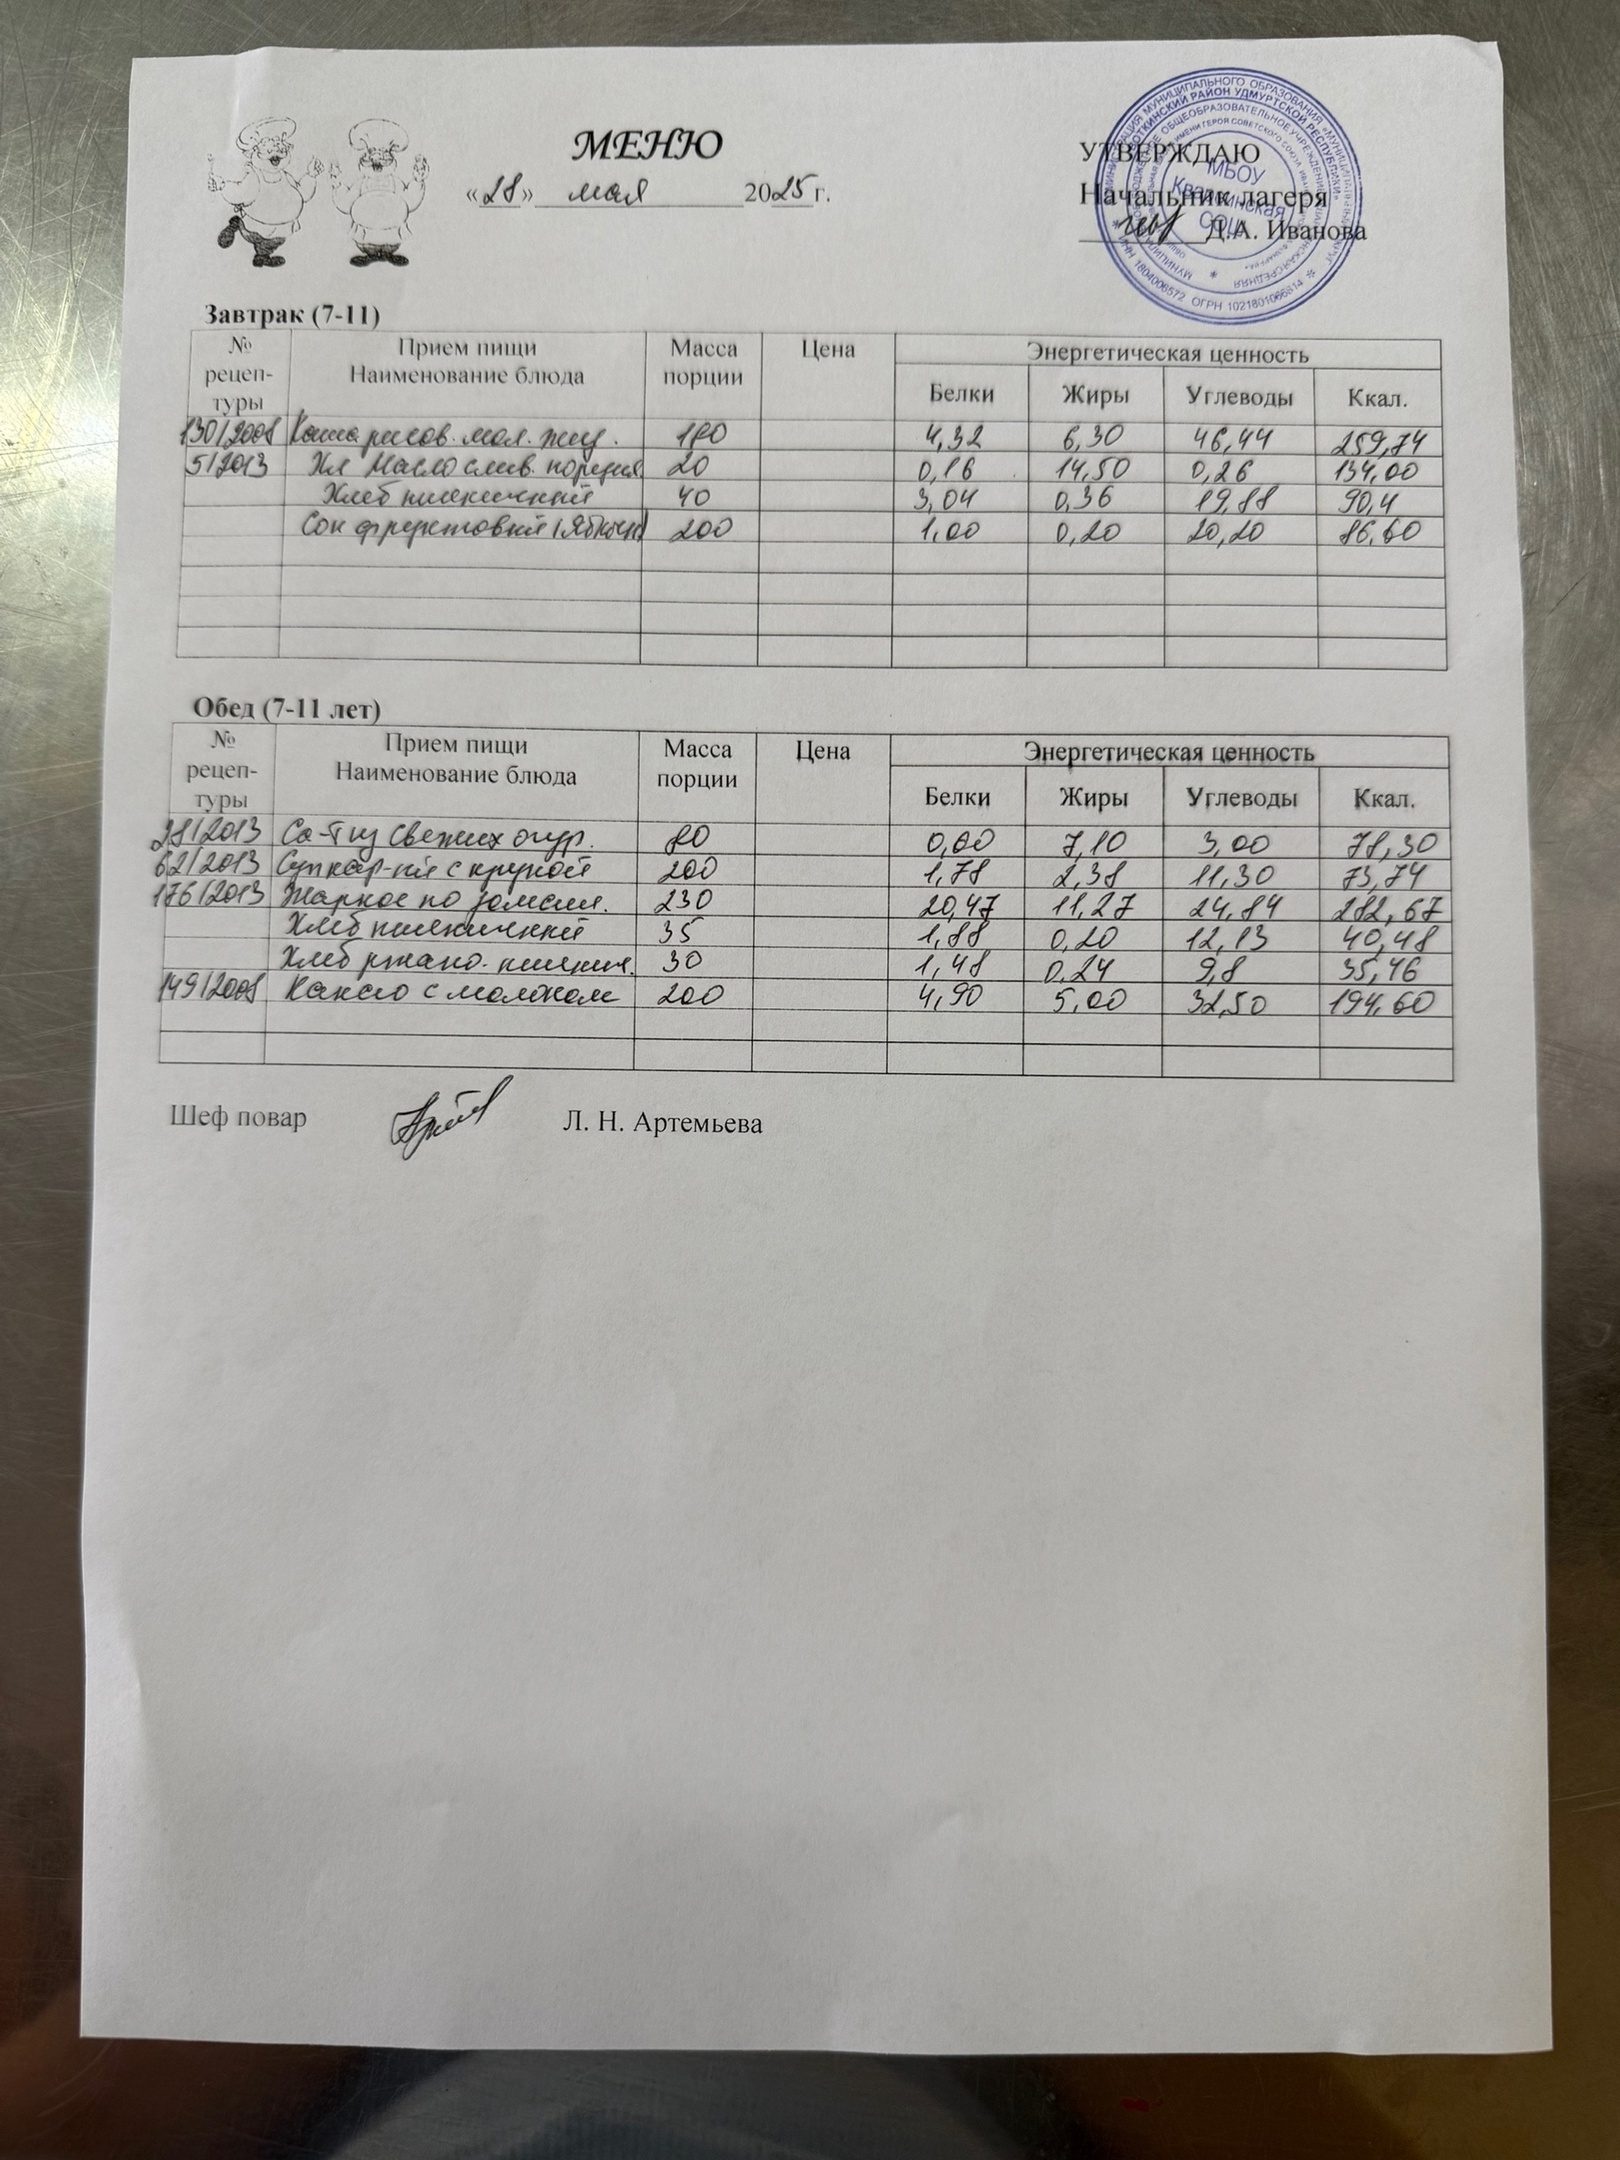 МЕНЮ
«28» мая 2025 г.
УТВЕРЖДАЮ
Начальник лагеря
Д.А. Иванова
МБОУ
Кварсинская
СОШ
ИНН 1804006572 ОГРН 1021801066814
Завтрак (7-11)
№ рецеп-туры Прием пищи Наименование блюда Масса порции Цена Энергетическая ценность
Белки Жиры Углеводы Ккал.
130/2008 Каша рисов. мол. жид. 180 4,32 6,30 46,44 259,74
5/2013 Хл Масло слив. порция 20 0,16 14,50 0,26 134,00
Хлеб пшеничный 40 3,04 0,36 19,88 90,4
Сок фруктовый (Яблочн) 200 1,00 0,20 20,20 86,60
Обед (7-11 лет)
№ рецеп-туры Прием пищи Наименование блюда Масса порции Цена Энергетическая ценность
Белки Жиры Углеводы Ккал.
28/2013 Са-т из свежих огур. 80 0,60 7,10 3,00 78,30
62/2013 Суп кар-ый с крупой 200 1,78 2,38 11,30 73,74
176/2013 Жаркое по домашн. 230 20,47 11,27 24,84 282,67
Хлеб пшеничный 35 1,88 0,20 12,13 40,48
Хлеб ржано. пшенич. 30 1,48 0,24 9,8 35,46
149/2008 Какао с молоком 200 4,90 5,00 32,50 194,60
Шеф повар Л. Н. Артемьева